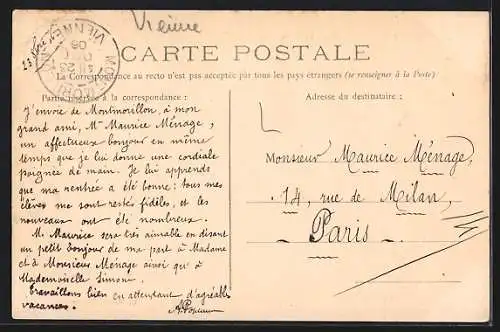 Vienne
CARTE POSTALE
La Correspondance au recto n'est pas acceptée par tous les pays étrangers (se renseigner à la Poste)
Partie réservée à la correspondance :
J'envoie de Montmorillon, à mon
grand ami, Mr Maurice Ménage,
un affectueux bonjour en même
temps que je lui donne une cordiale
poignée de main. Je lui apprends
que ma rentrée a été bonne : tous mes
élèves me sont restés fidèles, et les
nouveaux ont été nombreux.
M. Maurice sera très aimable en disant
un petit bonjour de ma part à Madame
et à Monsieur Ménage ainsi qu'à
Mademoiselle Simone.
Travaillons bien en attendant d'agréables
vacances.
Adresse du destinataire :
Monsieur Maurice Ménage,
14, rue de Milan,
Paris
VIENNE